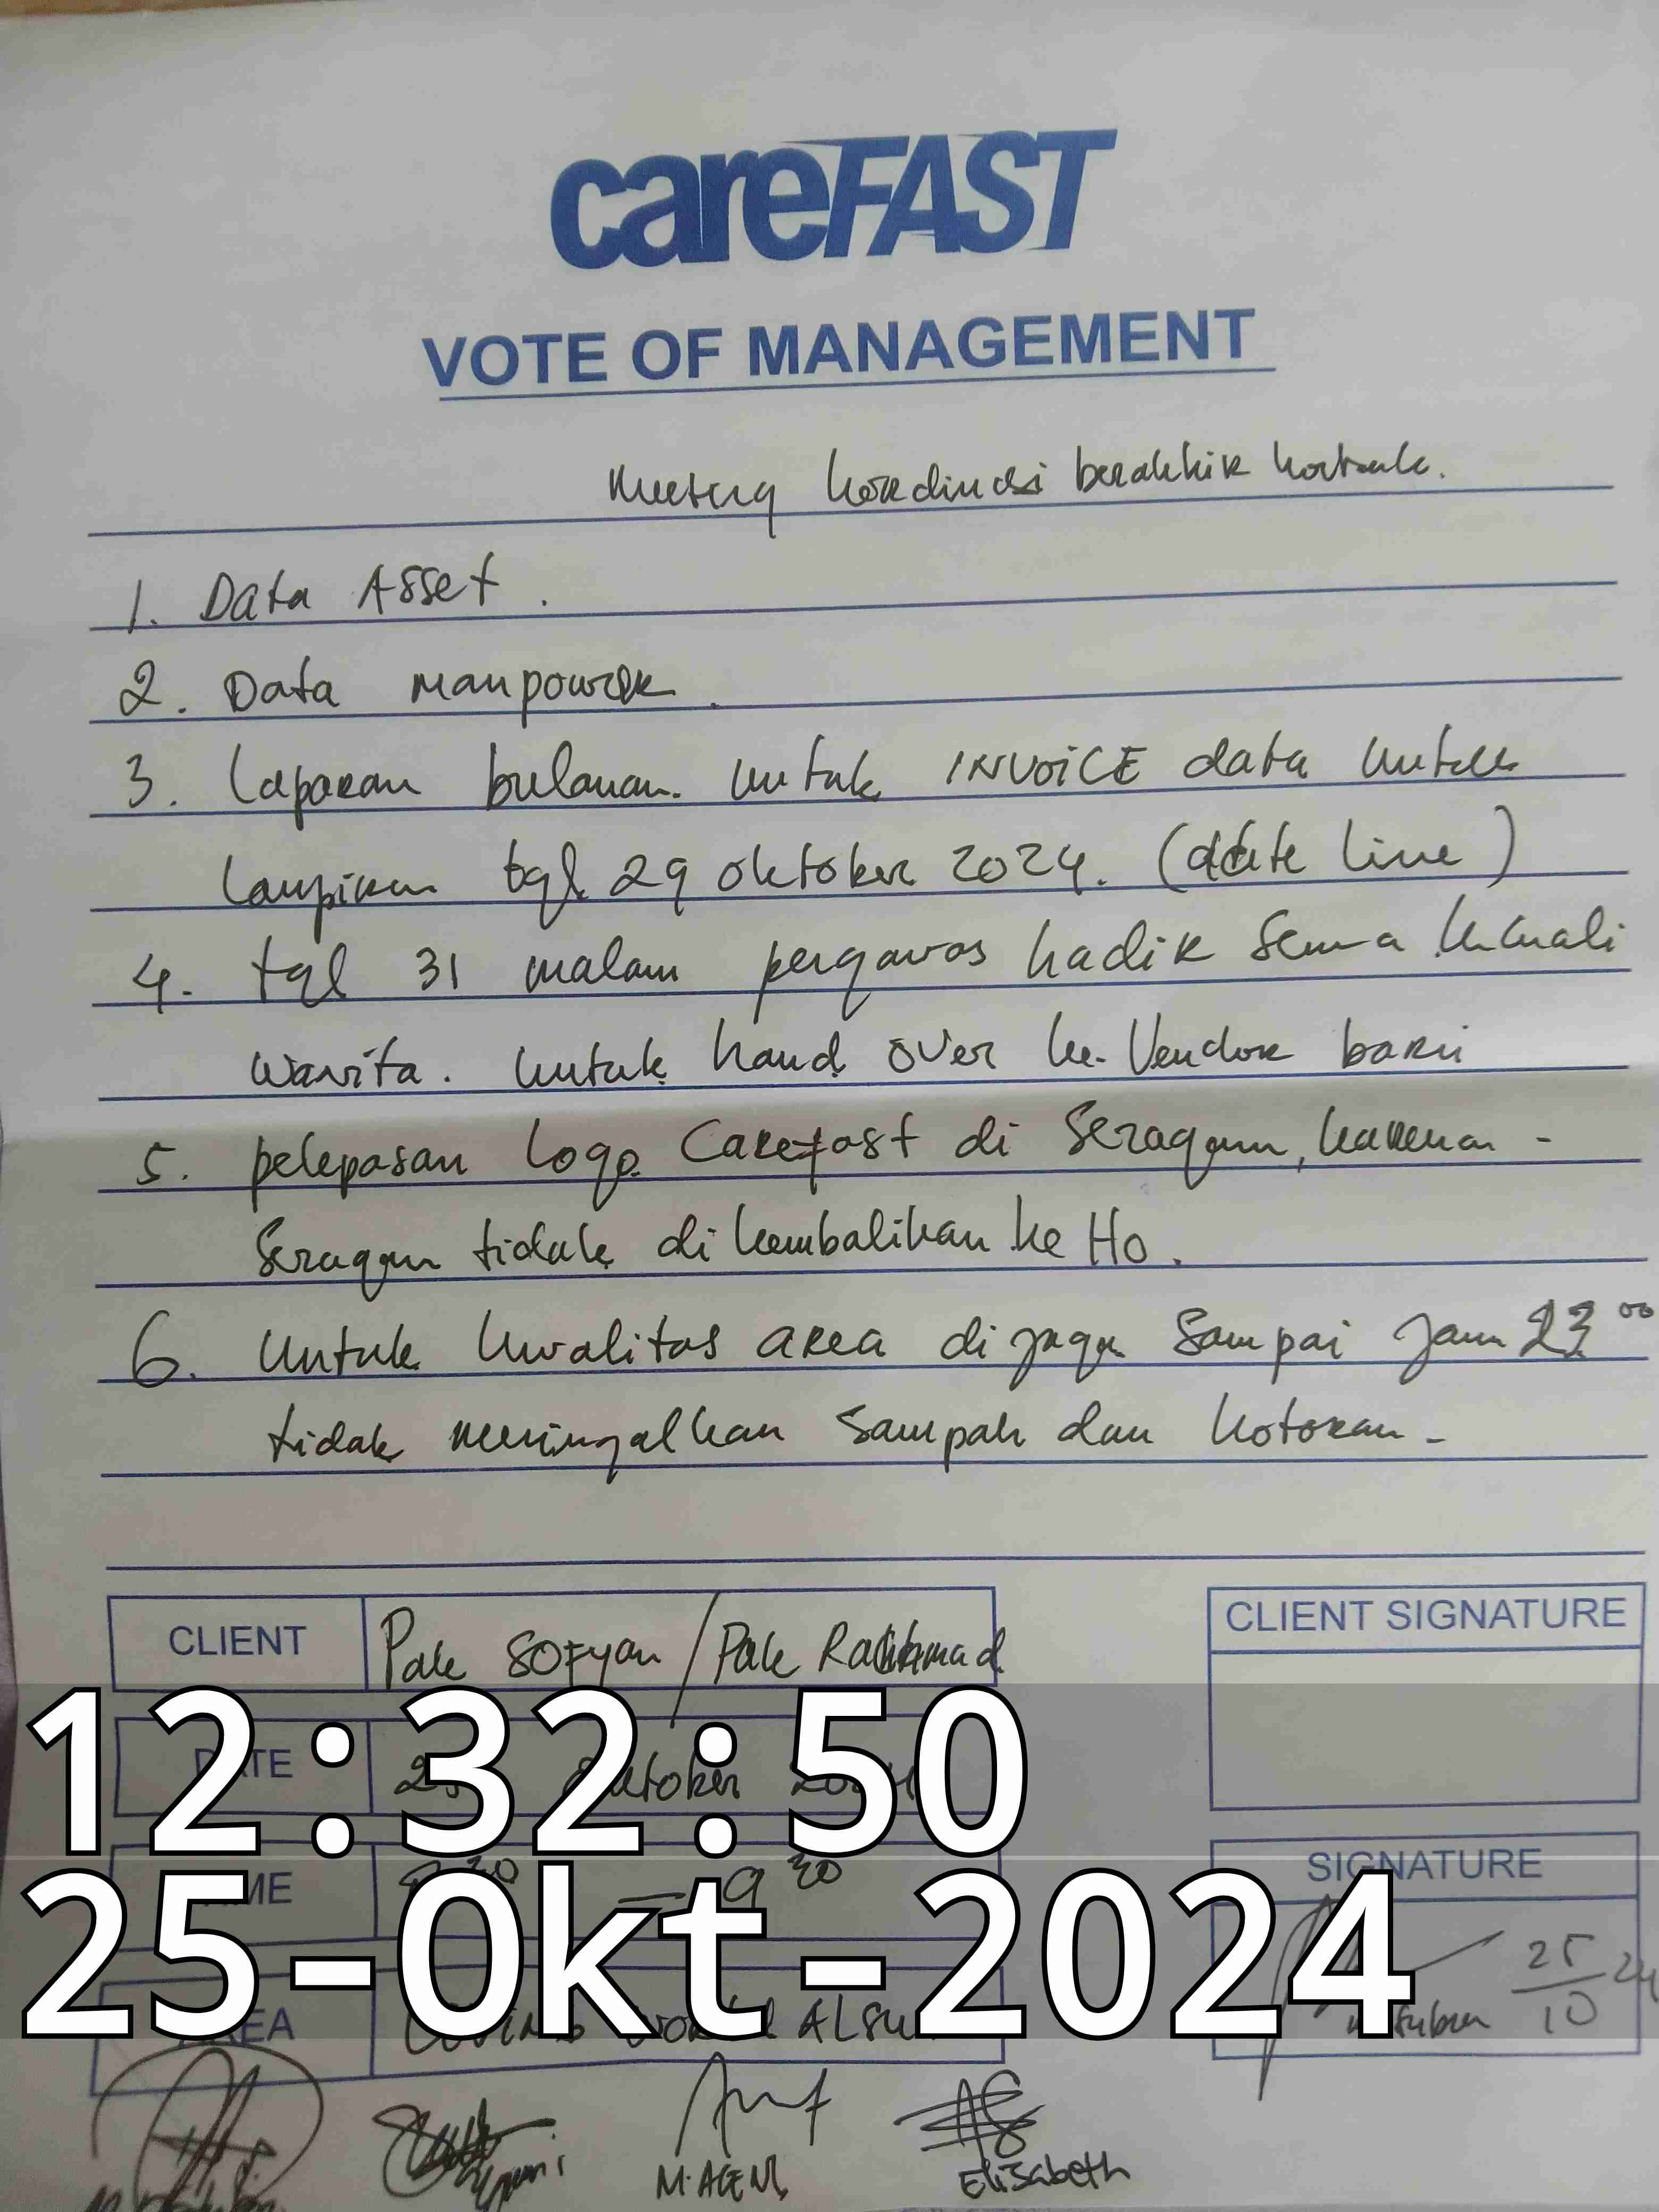 careFAST
VOTE OF MANAGEMENT
Meeting kordinasi berakhir kontrak.
1. Data Asset.
2. Data manpower.
3. Laporan bulanan untuk INVOICE data untuk
lampiran tgl 29 oktober 2024. (date line)
4. tgl 31 malam pengawas hadir semua kecuali
wanita. untuk hand over ke Vendor baru
5. pelepasan logo Carefast di Seragam, karena -
Seragam tidak di kembalikan ke Ho.
6. Untuk kwalitas area di jaga Sampai jam 23 00
tidak meningalkan Sampah dan kotoran -
CLIENT Pak SOFyan / Pak Rachmad
CLIENT SIGNATURE
12:32:50
DATE 25 Oktober 2024
TIME 30 - 9 30
SIGNATURE
25-Okt-2024
AREA ALSUT
25/10 24
M. AGENG
Elisabeth